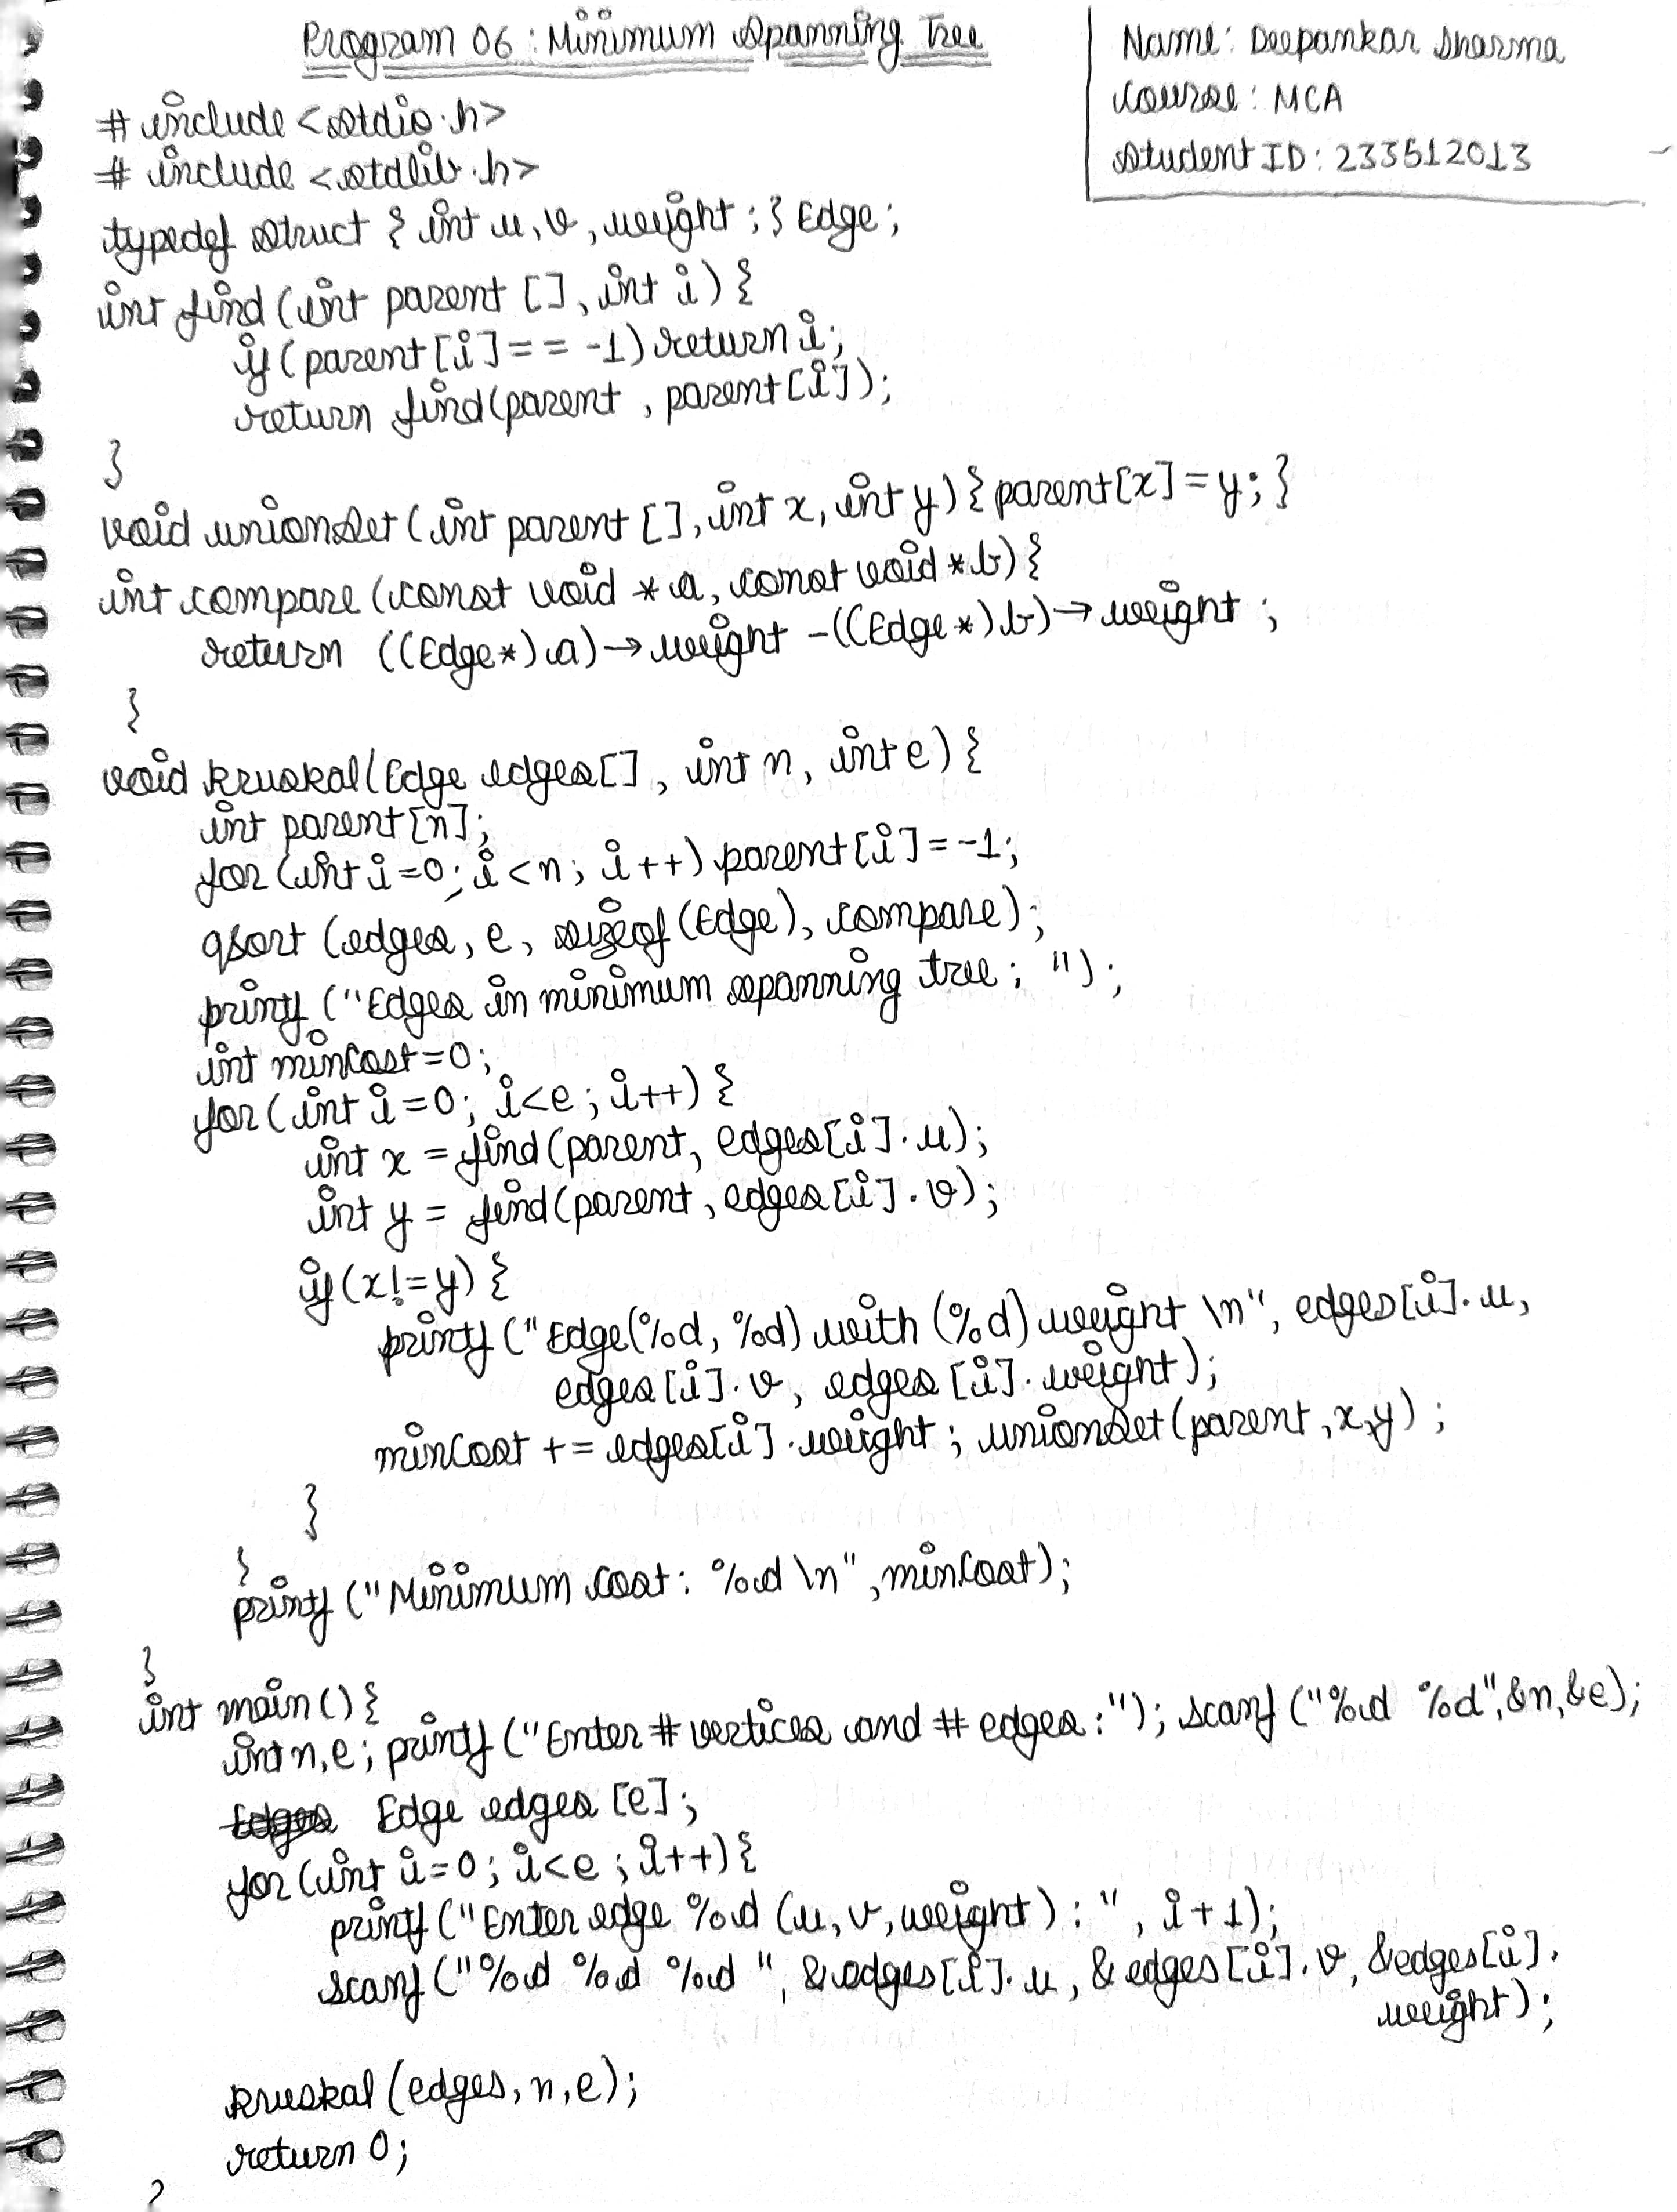 Program 06 : Minimum Spanning Tree
Name: Deepankar Sharma
Course: MCA
Student ID: 233512013
# include <stdio.h>
# include <stdlib.h>
typedef struct { int u, v, weight ; } Edge ;
int find (int parent [], int i) {
if (parent[i] == -1) return i;
return find(parent , parent[i]);
}
void unionSet (int parent [], int x, int y) { parent[x] = y; }
int compare (const void * a, const void * b) {
return ((Edge*) a) → weight - ((Edge *) b) → weight ;
}
void kruskal (Edge edges[] , int n, int e) {
int parent [n];
for (int i=0; i<n; i++) parent [i] = -1;
qsort (edges, e, sizeof (Edge), compare);
printf ("Edges in minimum spanning tree : ");
int minCost = 0;
for (int i=0; i<e ; i++) {
int x = find (parent, edges[i].u);
int y = find (parent, edges[i].v);
if (x!=y) {
printf ("Edge(%d, %d) with (%d) weight \n", edges[i].u,
edges[i].v, edges [i].weight);
minCost += edges[i].weight ; unionSet (parent, x,y) ;
}
}
printf ("Minimum cost : %d \n", minCost);
}
int main () {
int n,e ; printf ("Enter # vertices and # edges :"); scanf ("%d %d",&n,&e);
Edge edges [e];
for (int i=0; i<e ; i++){
printf ("Enter edge %d (u, v, weight) : ", i+1);
scanf ("%d %d %d ", &edges[i].u, &edges[i].v, &edges[i].
weight);
kruskal (edges, n, e);
return 0;
}